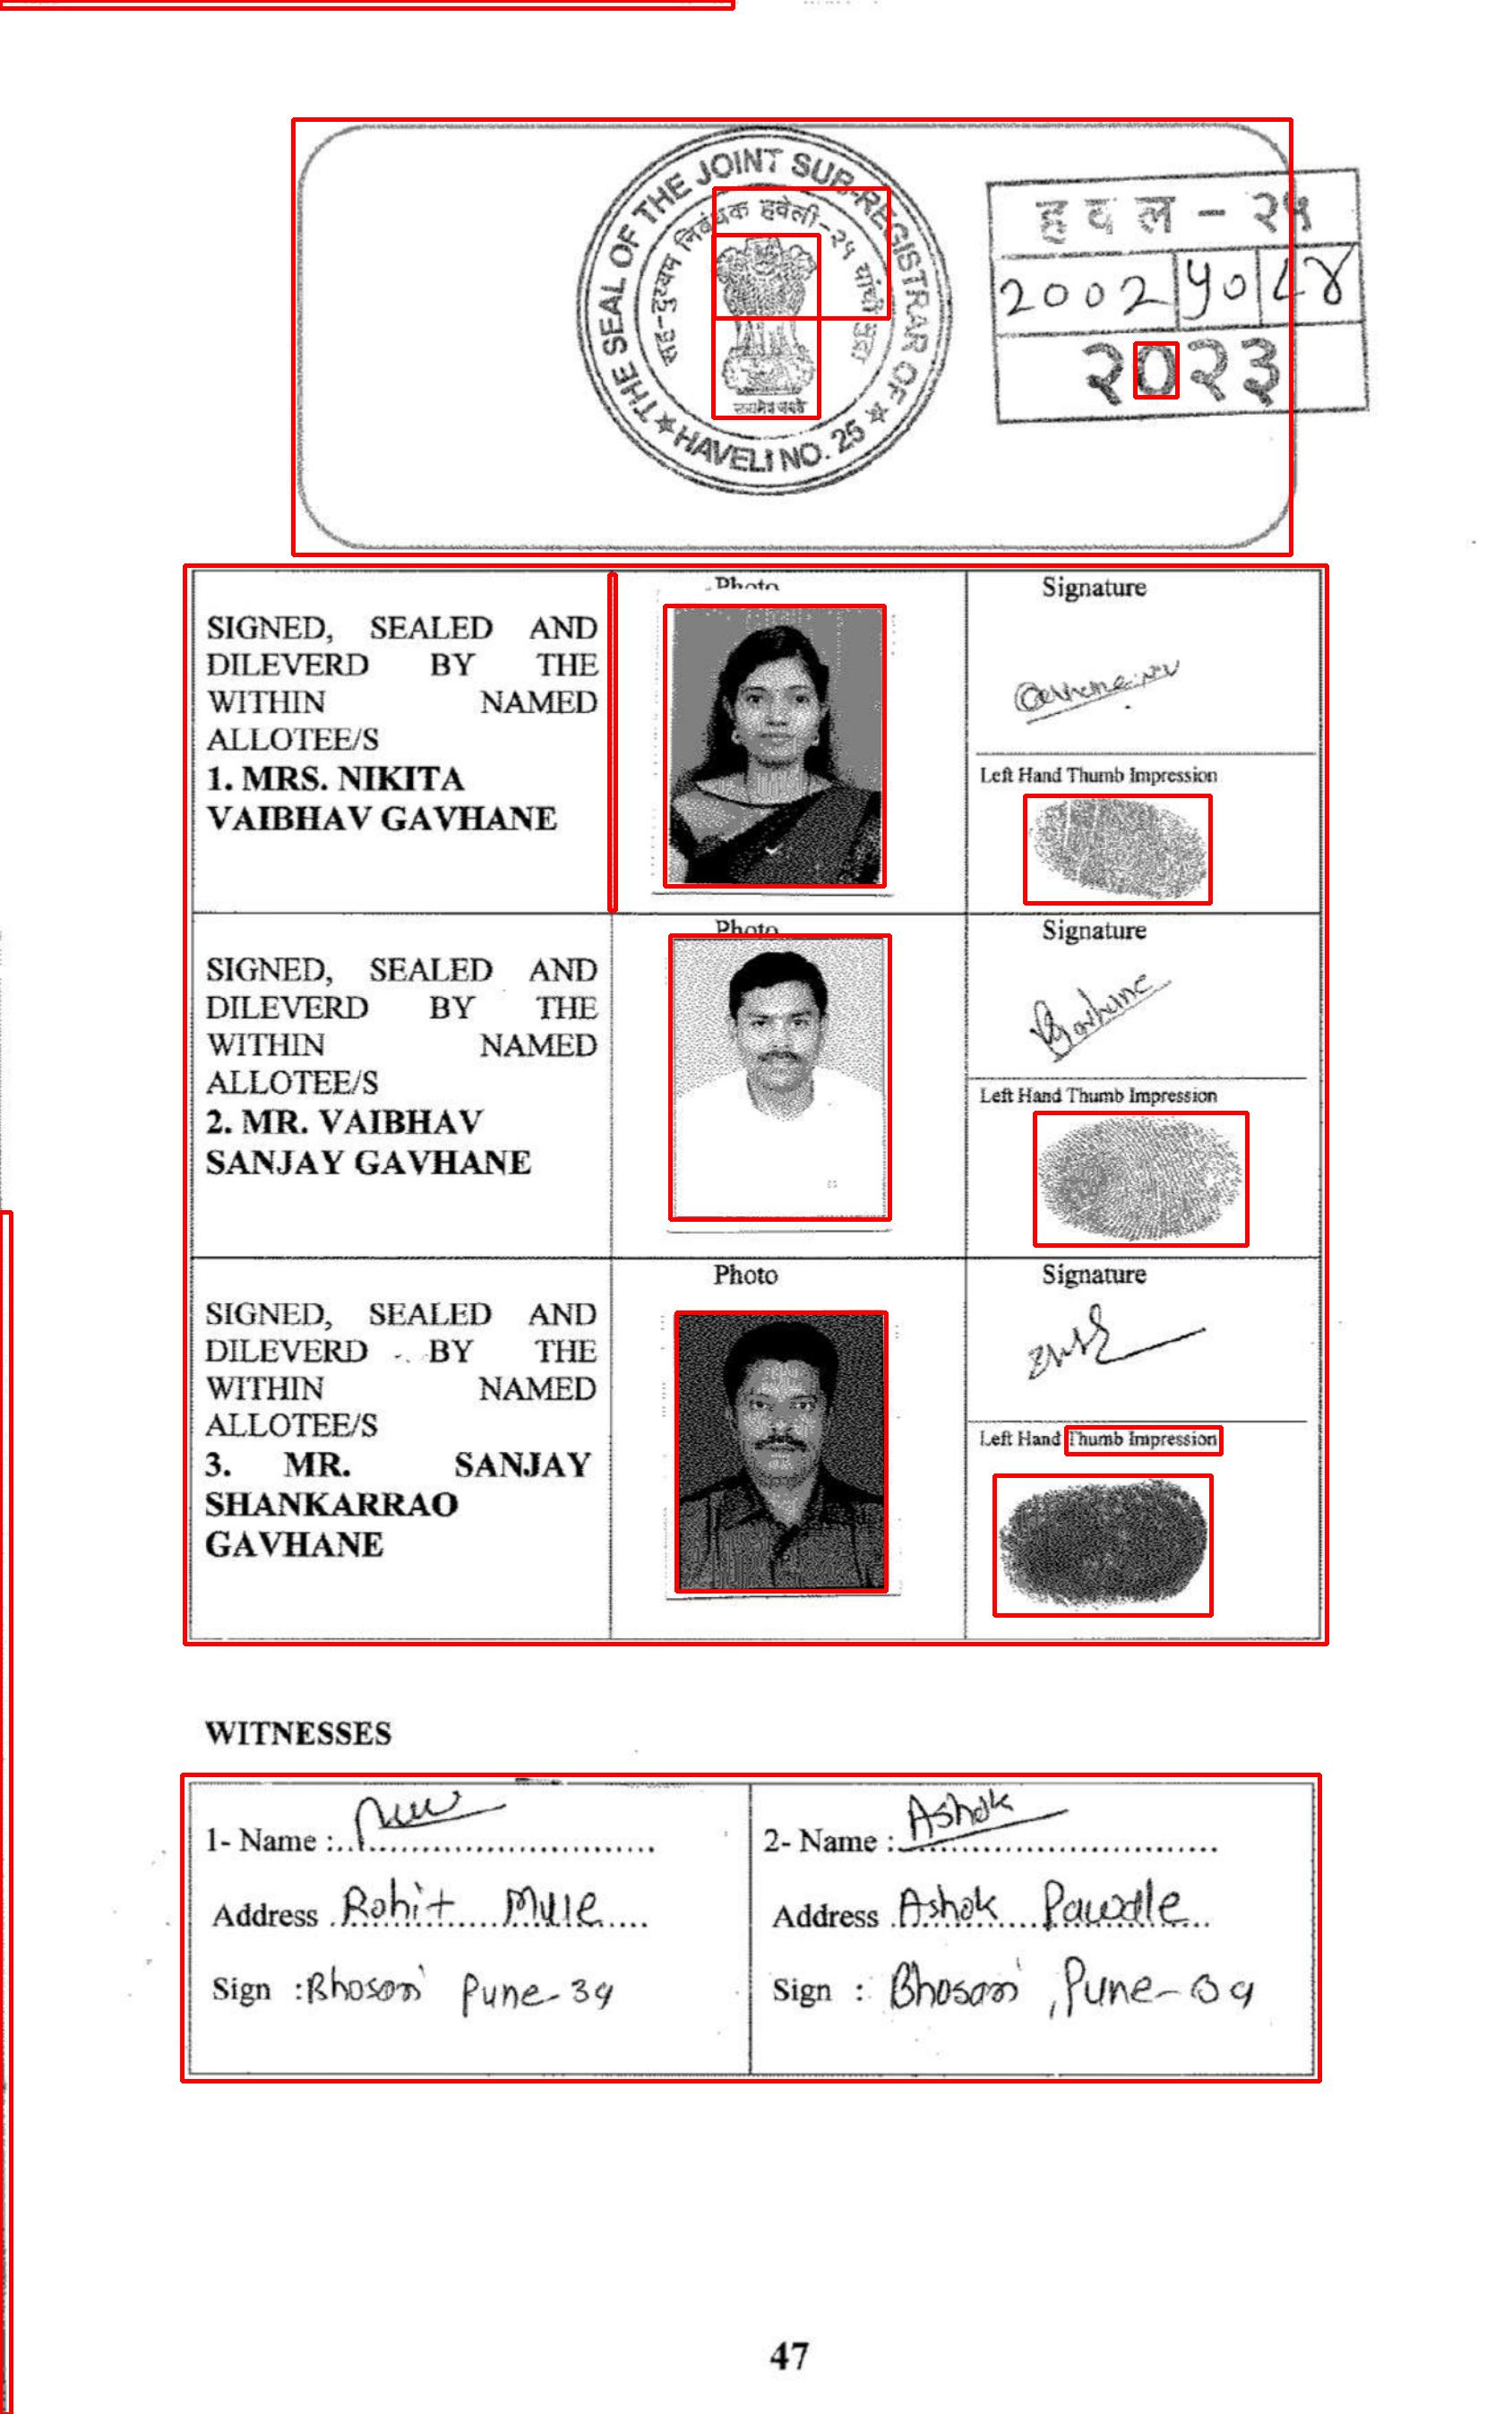 THE SEAL OF THE JOINT SUB-REGISTRAR OF
★ HAVELI NO. 25 ★
सह-दुय्यम निबंधक हवेली-२५ यांची मुद्रा
हवल - २५
2002 50 84
२०२३
Photo
Signature
SIGNED, SEALED AND
DILEVERD BY THE
WITHIN NAMED
ALLOTEE/S
1. MRS. NIKITA
VAIBHAV GAVHANE
Left Hand Thumb Impression
Photo
Signature
SIGNED, SEALED AND
DILEVERD BY THE
WITHIN NAMED
ALLOTEE/S
2. MR. VAIBHAV
SANJAY GAVHANE
Gavhane
Left Hand Thumb Impression
Photo
Signature
SIGNED, SEALED AND
DILEVERD BY THE
WITHIN NAMED
ALLOTEE/S
3. MR. SANJAY
SHANKARRAO
GAVHANE
Left Hand Thumb Impression
WITNESSES
1- Name :
Address Rohit Mule
Sign : Bhosari Pune-39
2- Name : Ashok
Address Ashok
Sign : Bhosari, Pune-39
47